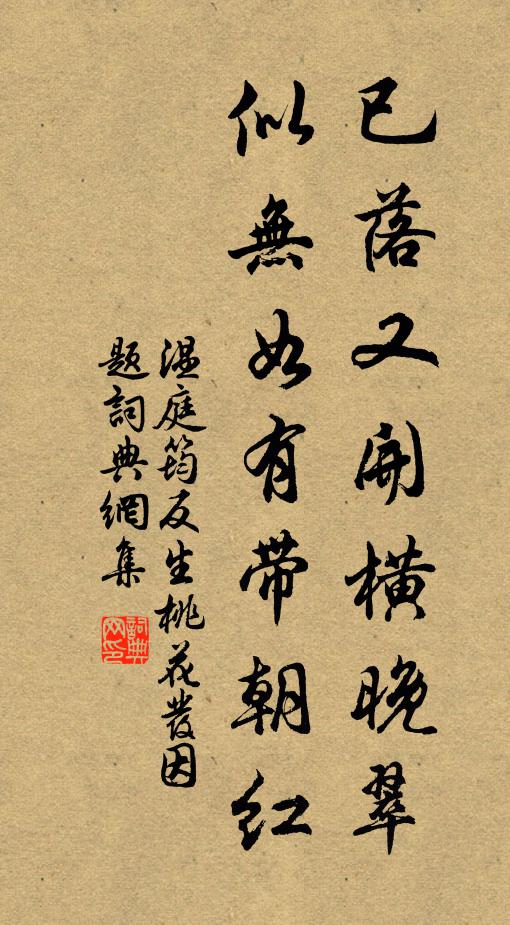 已落又開橫晚翠
似無如有帶朝紅
溫庭筠反生桃花發因
題詞典網集
詞典网印